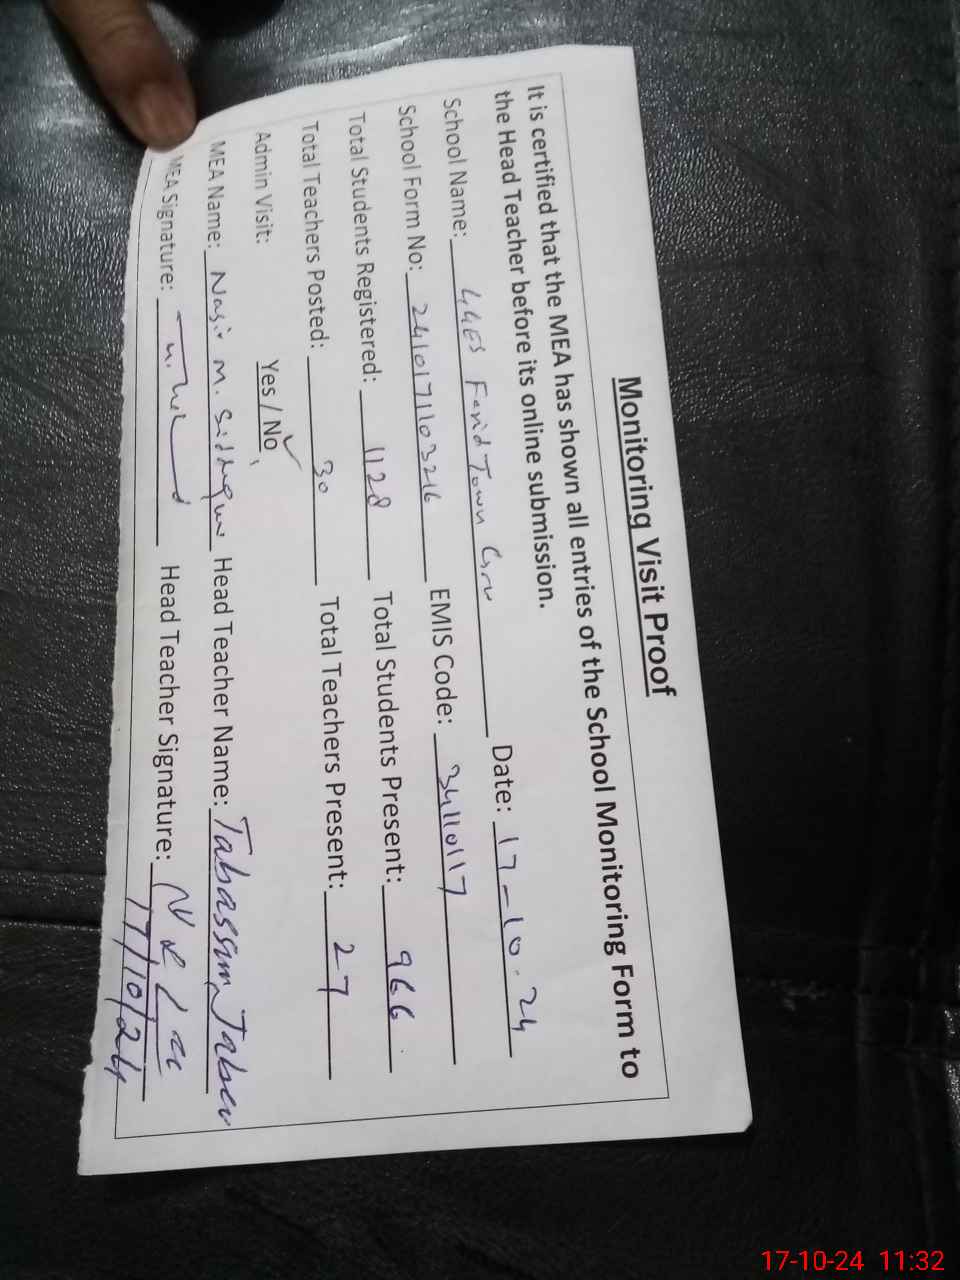 Monitoring Visit Proof
It is certified that the MEA has shown all entries of the School Monitoring Form to
the Head Teacher before its online submission.
School Name: GGES Farid Town Date: 17-10-24
School Form No: 2410171103216 EMIS Code: 34110117
Total Students Registered: 1128 Total Students Present: 966
Total Teachers Posted: 30 Total Teachers Present: 27
Admin Visit: Yes / No
MEA Name: Nasir M. Head Teacher Name: Tabassum
MEA Signature: Head Teacher Signature:
17/10/24
17-10-24 11:32